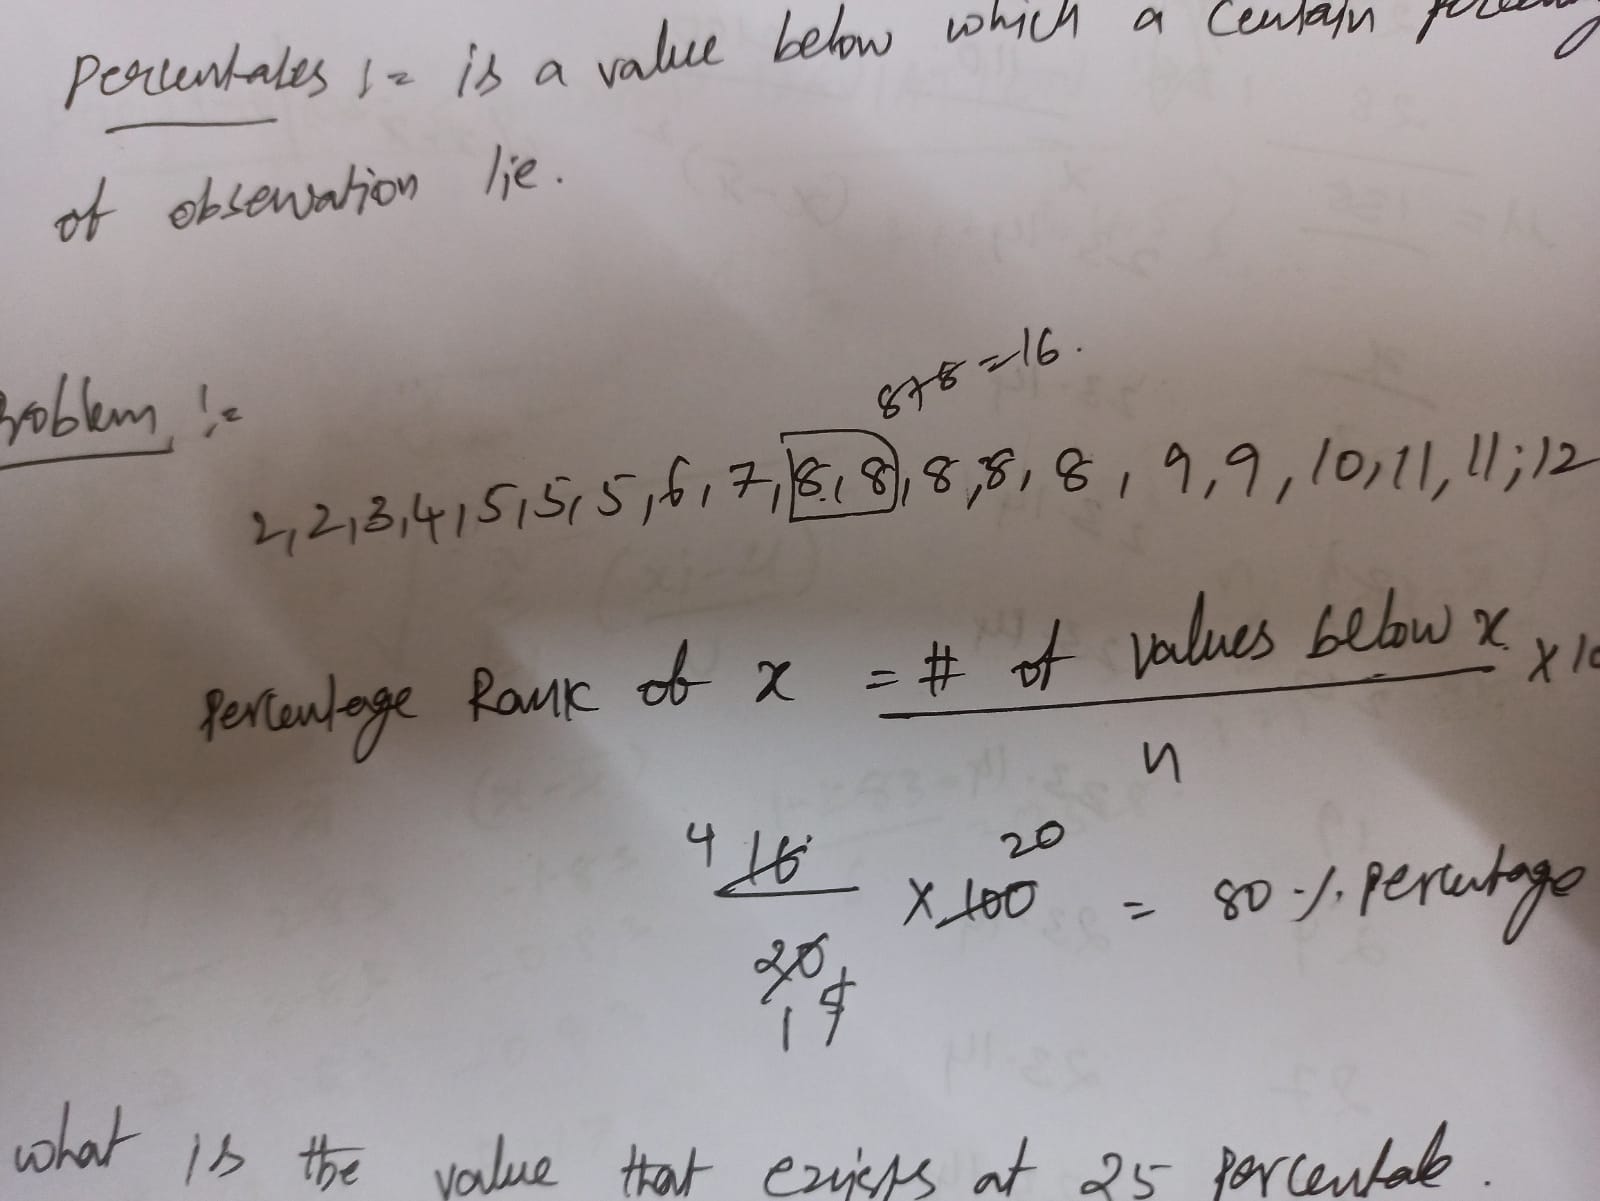 Percentales := is a value below which a certain
of observation lie.
Problem :=
8+8=16.
2,2,3,4,5,5,5,6,7,8,8,8,8,8,9,9,10,11,11,12
Percentage Rank of x = # of values below x × 10
n
4 16 × 100 20 = 80 % percentage
20
1 5
what is the value that exists at 25 percentale.